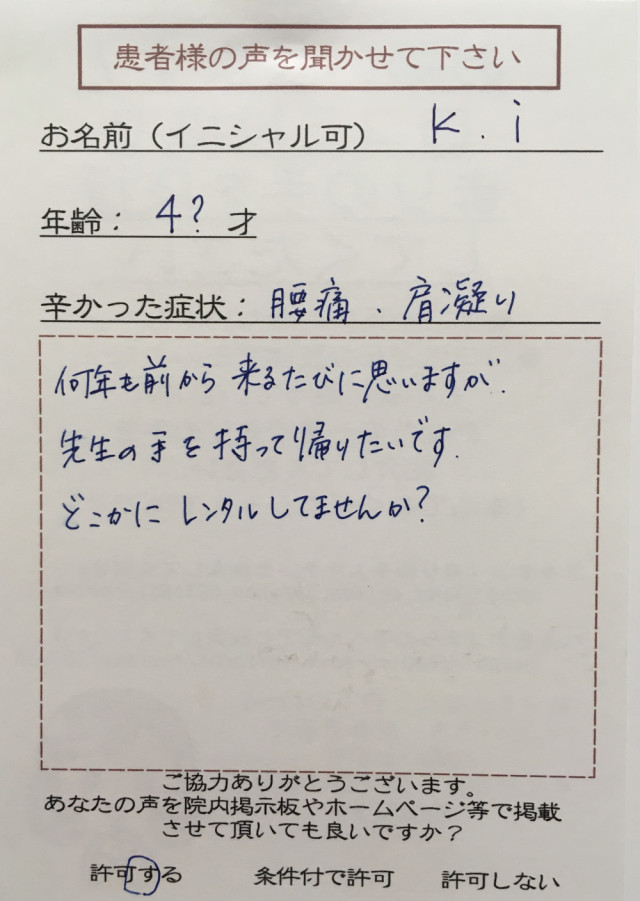 患者様の声を聞かせて下さい
お名前（イニシャル可） K.i
年齢： 4? 才
辛かった症状： 腰痛、肩凝り
何年も前から 来るたびに思いますが、
先生の手を持って帰りたいです。
どこかにレンタルしてませんか?
ご協力ありがとうございます。
あなたの声を院内掲示板やホームページ等で掲載
させて頂いても良いですか？
許可する 条件付で許可 許可しない